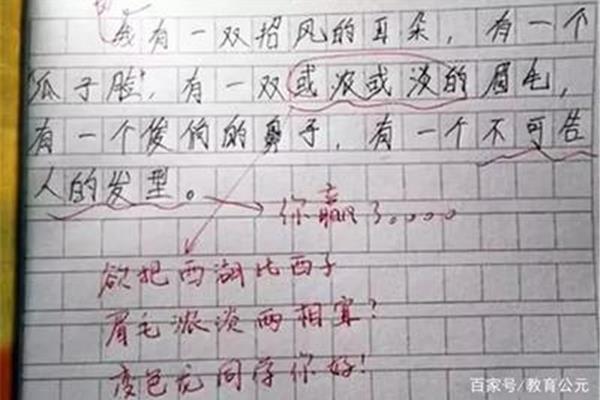 我有一双招风的耳朵，有一个
瓜子脸，有一双或浓或淡的眉毛，
有一个俊俏的鼻子，有一个不可告
人的发型。
你赢了。。。。
欲把西湖比西子
眉毛浓淡两相宜？
变色龙同学你好！
百家号/教育公元